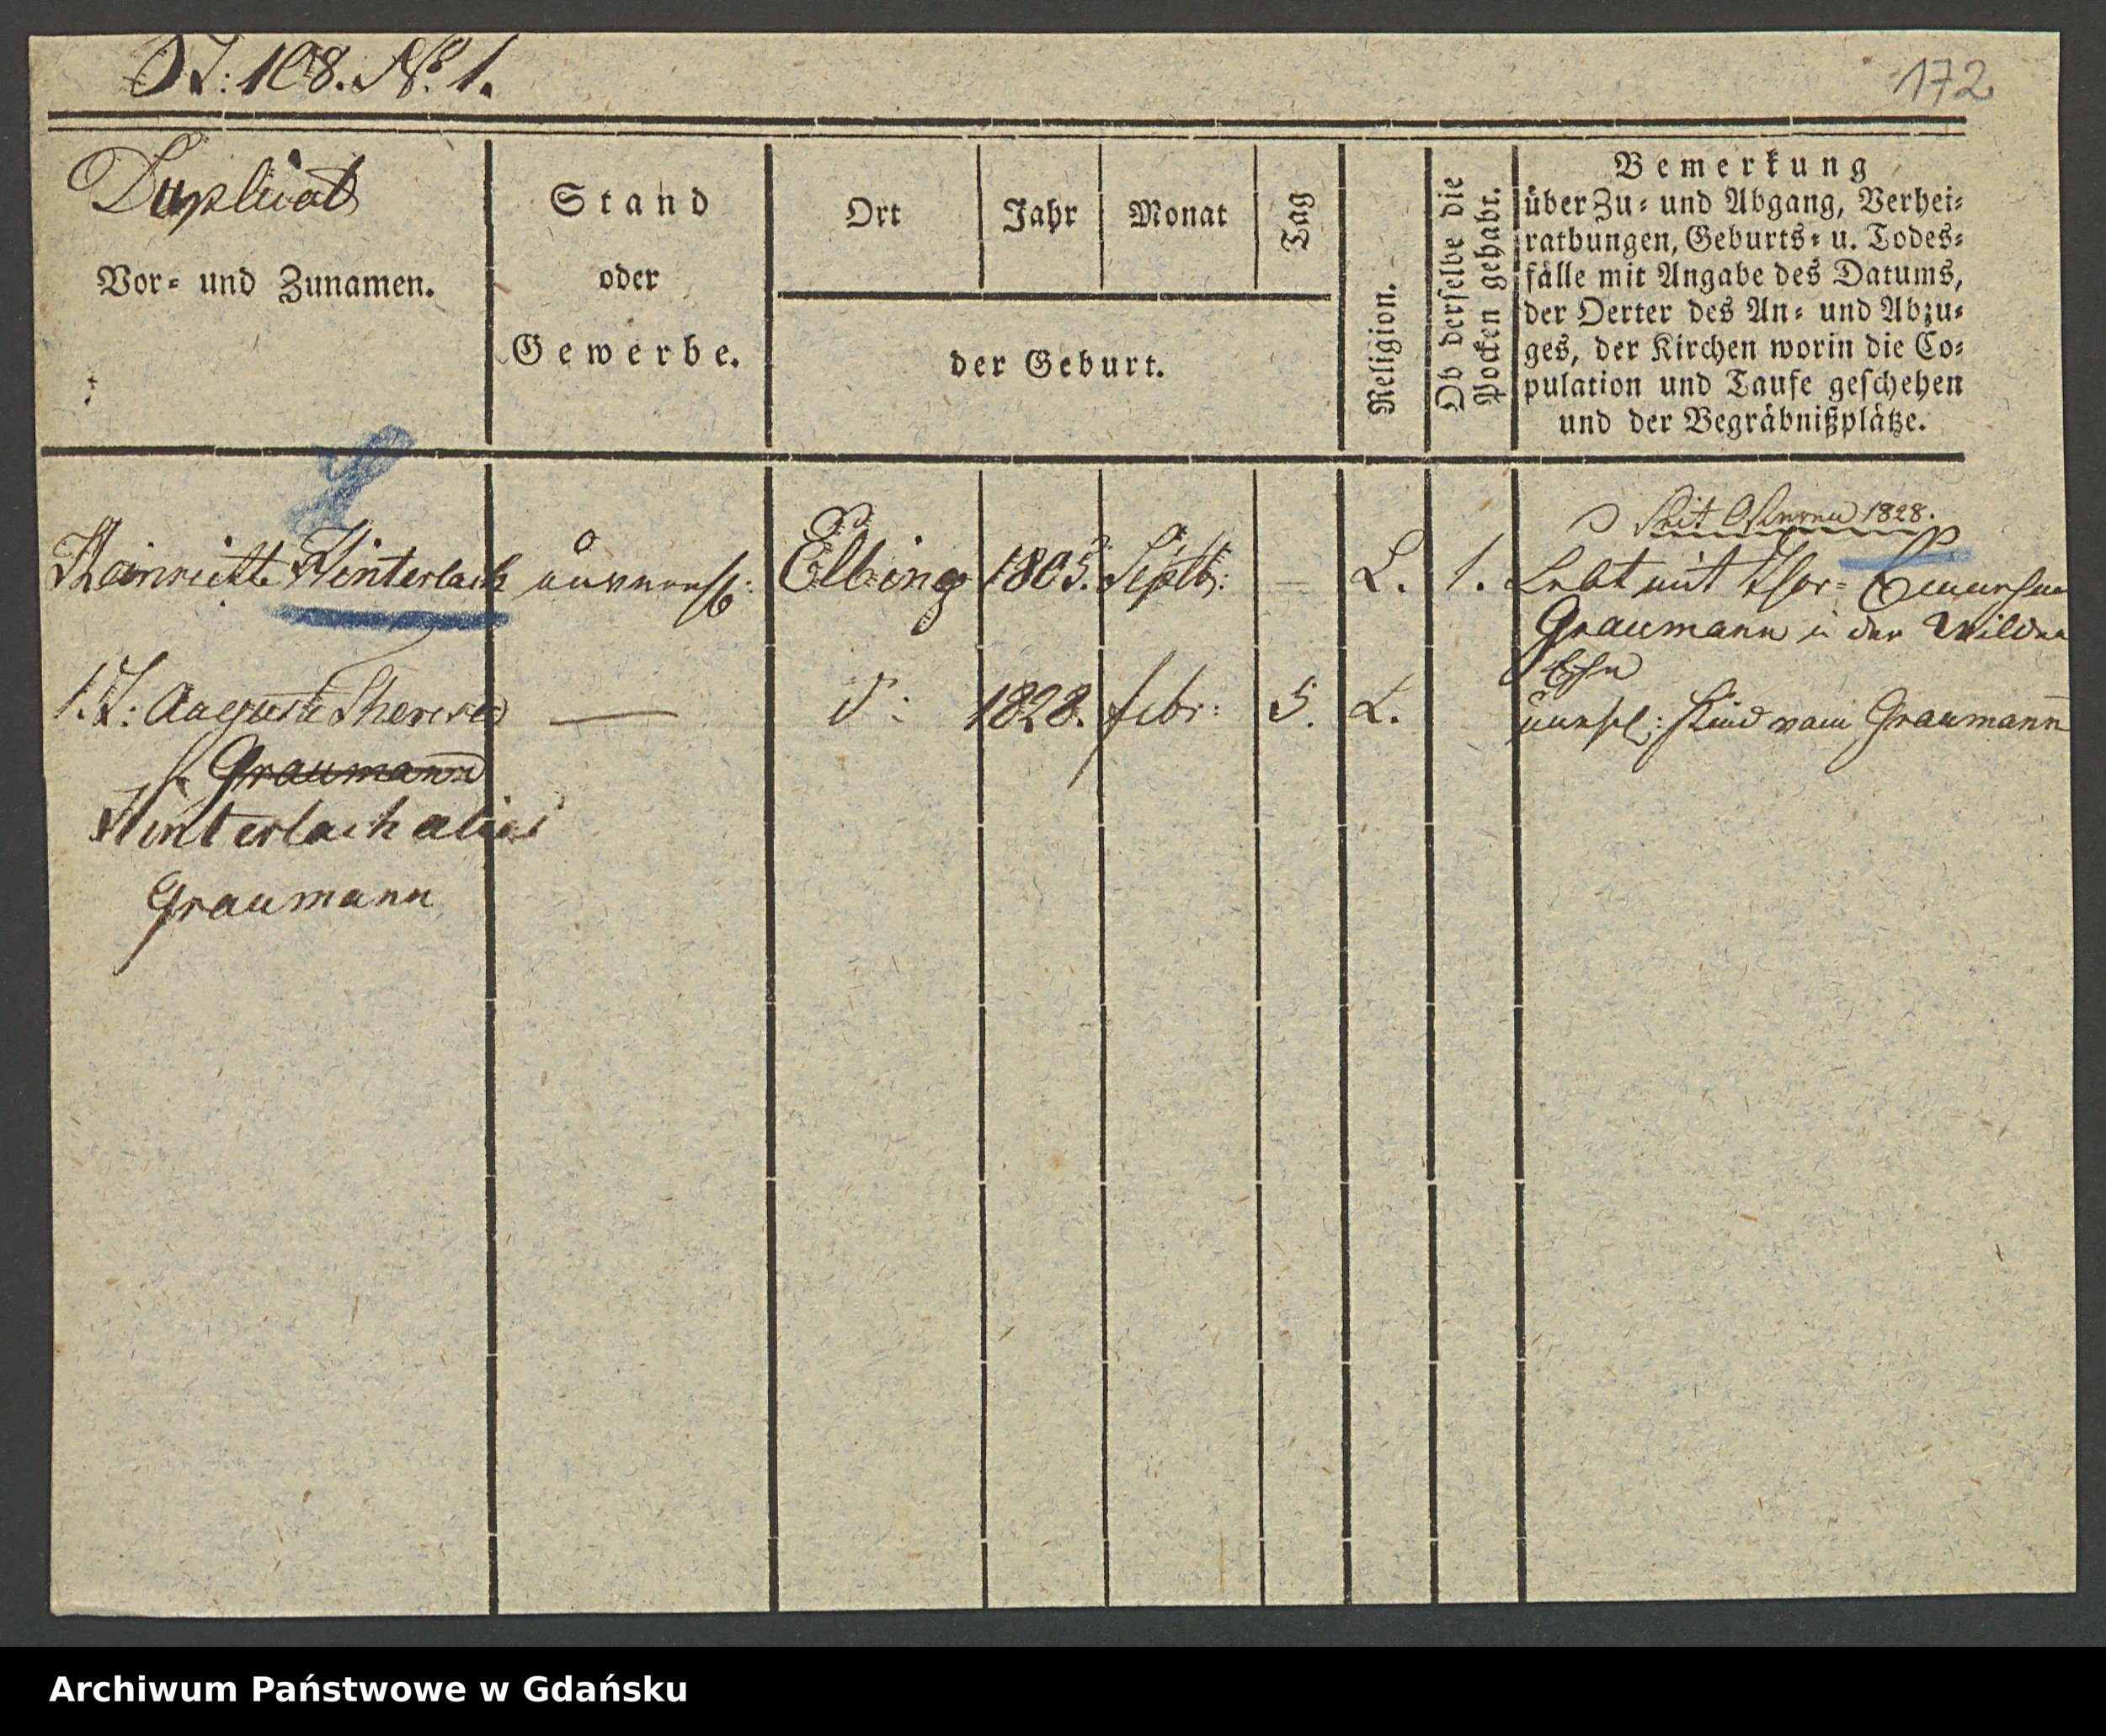 OI: 108. No. 1.
172
Duplicat
Vor- und Zunamen.
Stand
oder
Gewerbe.
Ort
Jahr
Monat
Tag
der Geburt.
Religion.
Ob derselbe die
Pocken gehabt.
Bemerkung
über Zu- und Abgang, Verhei-
rathungen, Geburts- u. Todes-
fälle mit Angabe des Datums,
der Oerter des An- und Abzu-
ges, der Kirchen worin die Co-
pulation und Taufe geschehen
und der Begräbnißplätze.
Seit Ostern 1828.
Heinriette Hinterlach unvereh: Elbing 1805. Septb: — L. 1. Lebt mit
Graumann in der Wilden
Ehe
1. T: Auguste Therese — d: 1828. febr: 5. L. unehl: Kind vom Graumann
Graumann
Hinterlach alias
Graumann
Archiwum Państwowe w Gdańsku